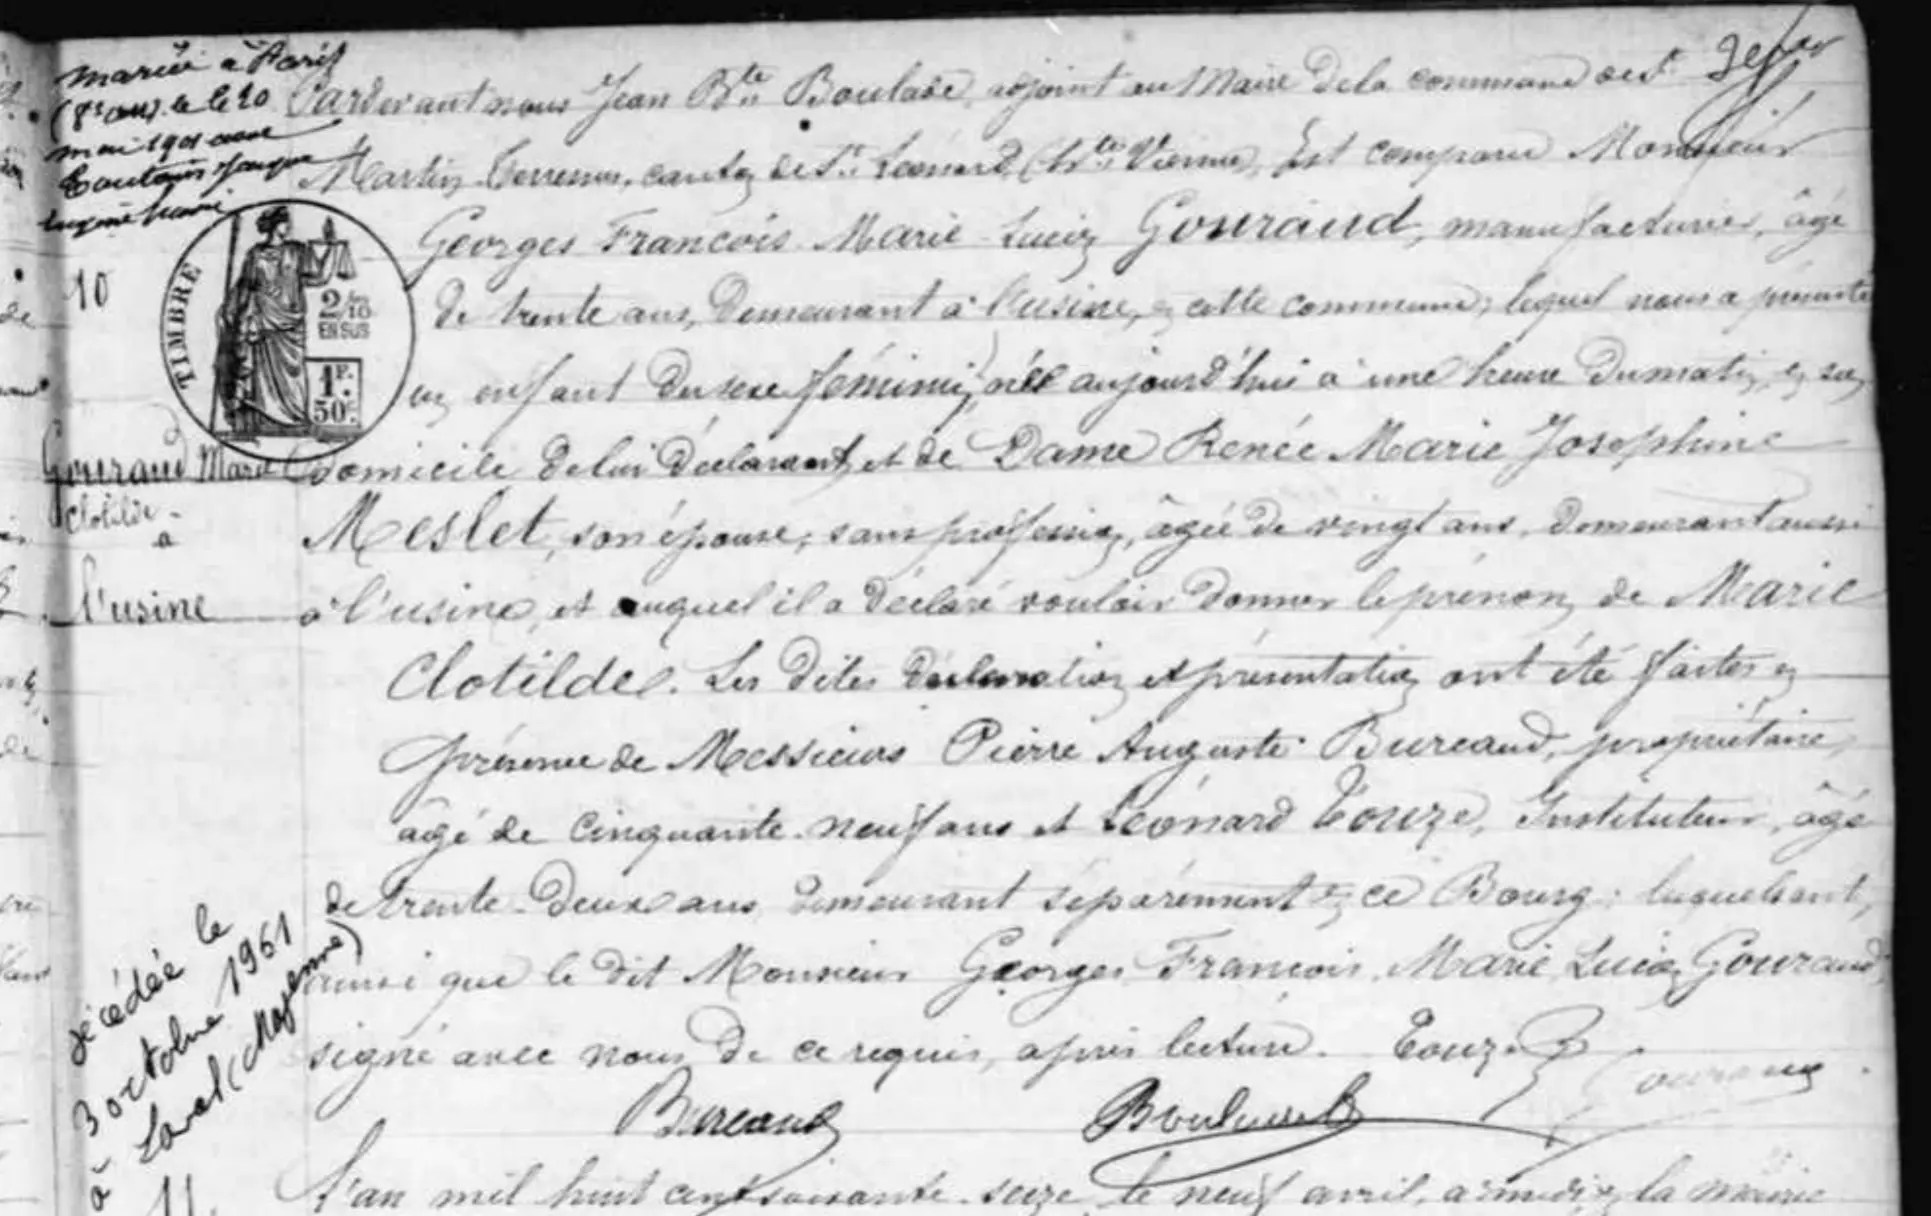 mariée à Paris
(8e arr.) le 20
mai 1901 avec
Eugène Marie
10
TIMBRE
2/10
EN SUS
1F.
50c.
Gouraud Marie
Clotilde
à
l'usine
décédée le
3 octobre 1961
à Laval (Mayenne)
11.
Pardevant nous Jean Bte Boulade, adjoint au Maire de la commune de St
Martin Terressus, canton de St Léonard (Hte Vienne), Est comparu Monsieur
Georges François Marie Lucien Gouraud, manufacturier, âgé
de trente ans, demeurant à l'usine, en cette commune; lequel nous a présenté
un enfant du sexe féminin, née aujourd'hui à une heure du matin, en son
domicile de lui déclarant, et de Dame Renée Marie Josephine
Meslet, son épouse, sans profession, âgée de vingt ans, demeurant aussi
à l'usine, et auquel il a déclaré vouloir donner le prénom de Marie
Clotilde. Les dites déclaration et présentation ont été faites en
présence de Messieurs Pierre Auguste Bureaud, propriétaire,
âgé de cinquante-neuf ans et Léonard Touze, Instituteur, âgé
de trente-deux ans demeurant séparément en ce Bourg; lesquels ont,
ainsi que le dit Monsieur Georges François Marie Lucien Gouraud,
signé avec nous de ce requis, après lecture. Touze Gouraud
Bureaud
L'an mil huit cent soixante-seize le neuf avril, à midi, en la mairie